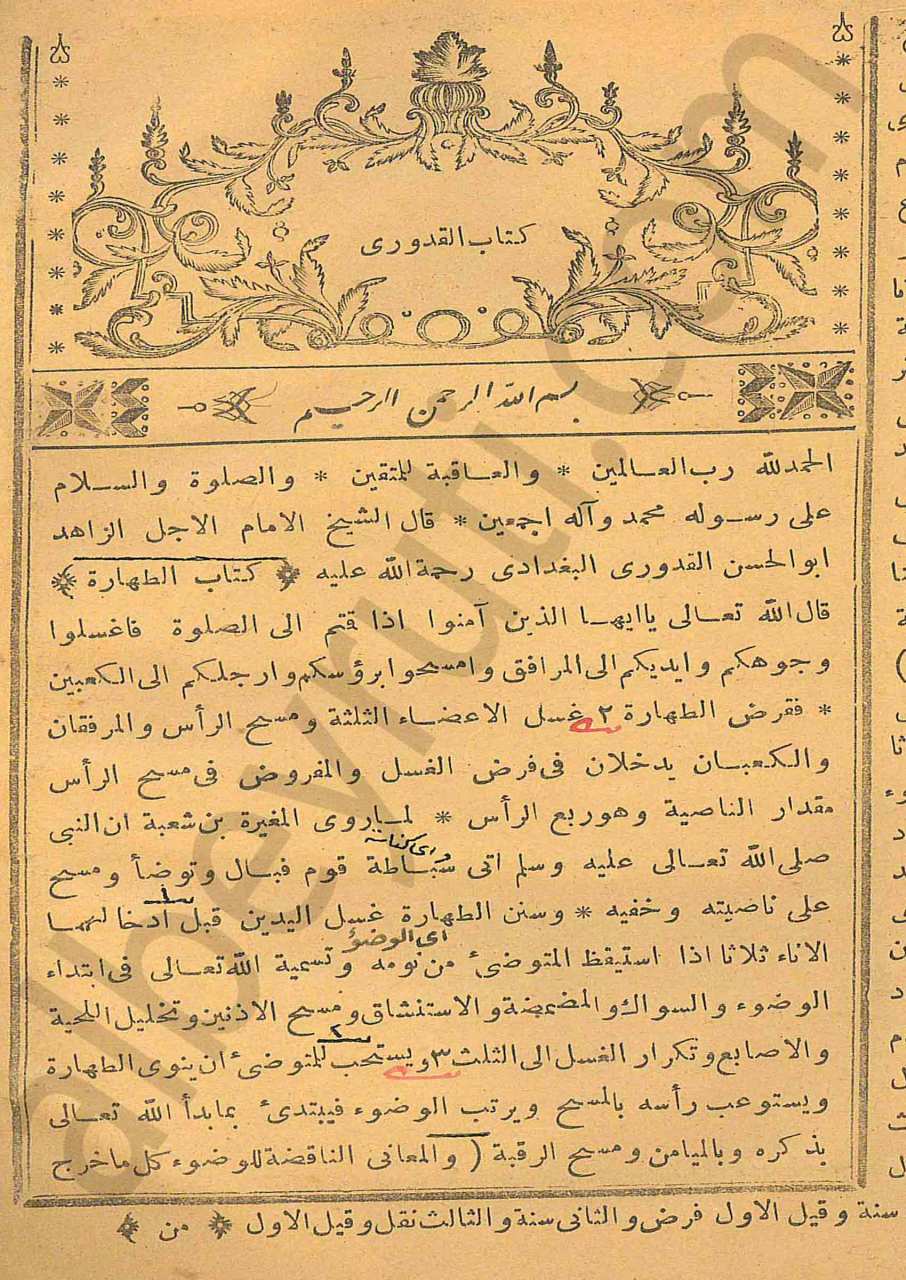 كتاب القدورى
بسم الله الرحمن الرحيم
الحمدلله رب العالمين * والعاقبة للمتقين * والصلوة والسلام
على رسوله محمد وآله اجمعين * قال الشيخ الامام الاجل الزاهد
ابوالحسن القدورى البغدادى رحمة الله عليه ﴿ كتاب الطهارة ﴾
قال الله تعالى ياايها الذين آمنوا اذا قتم الى الصلوة فاغسلوا
وجوهكم وايديكم الى المرافق وامسحوا برؤسكم وارجلكم الى الكعبين
* ففرض الطهارة ٢ غسل الاعضاء الثلثة ومسح الرأس والمرفقان
والكعبان يدخلان فى فرض الغسل والمفروض فى مسح الرأس
مقدار الناصية وهو ربع الرأس * لما روى المغيرة بن شعبة ان النبى
صلى الله تعالى عليه وسلم اتى سباطة قوم فبال وتوضأ ومسح
على ناصيته وخفيه * وسنن الطهارة غسل اليدين قبل ادخالهما
اى الوضوء
الاناء ثلاثا اذا استيقظ المتوضئ من نومه وتسمية الله تعالى فى ابتداء
الوضوء والسواك والمضمضة والاستنشاق ومسح الاذنين وتخليل اللحية
والاصابع وتكرار الغسل الى الثلث ٣ ويستحب للمتوضئ ان ينوى الطهارة
ويستوعب رأسه بالمسح ويرتب الوضوء فيبتدئ بمابدأ الله تعالى
بذكره وبالميامن ومسح الرقبة ( والمعانى الناقضة للوضوء كل ماخرج
سنة وقيل الاول فرض والثانى سنة والثالث نفل وقيل الاول ﴿ من ﴾
albeyruti.com